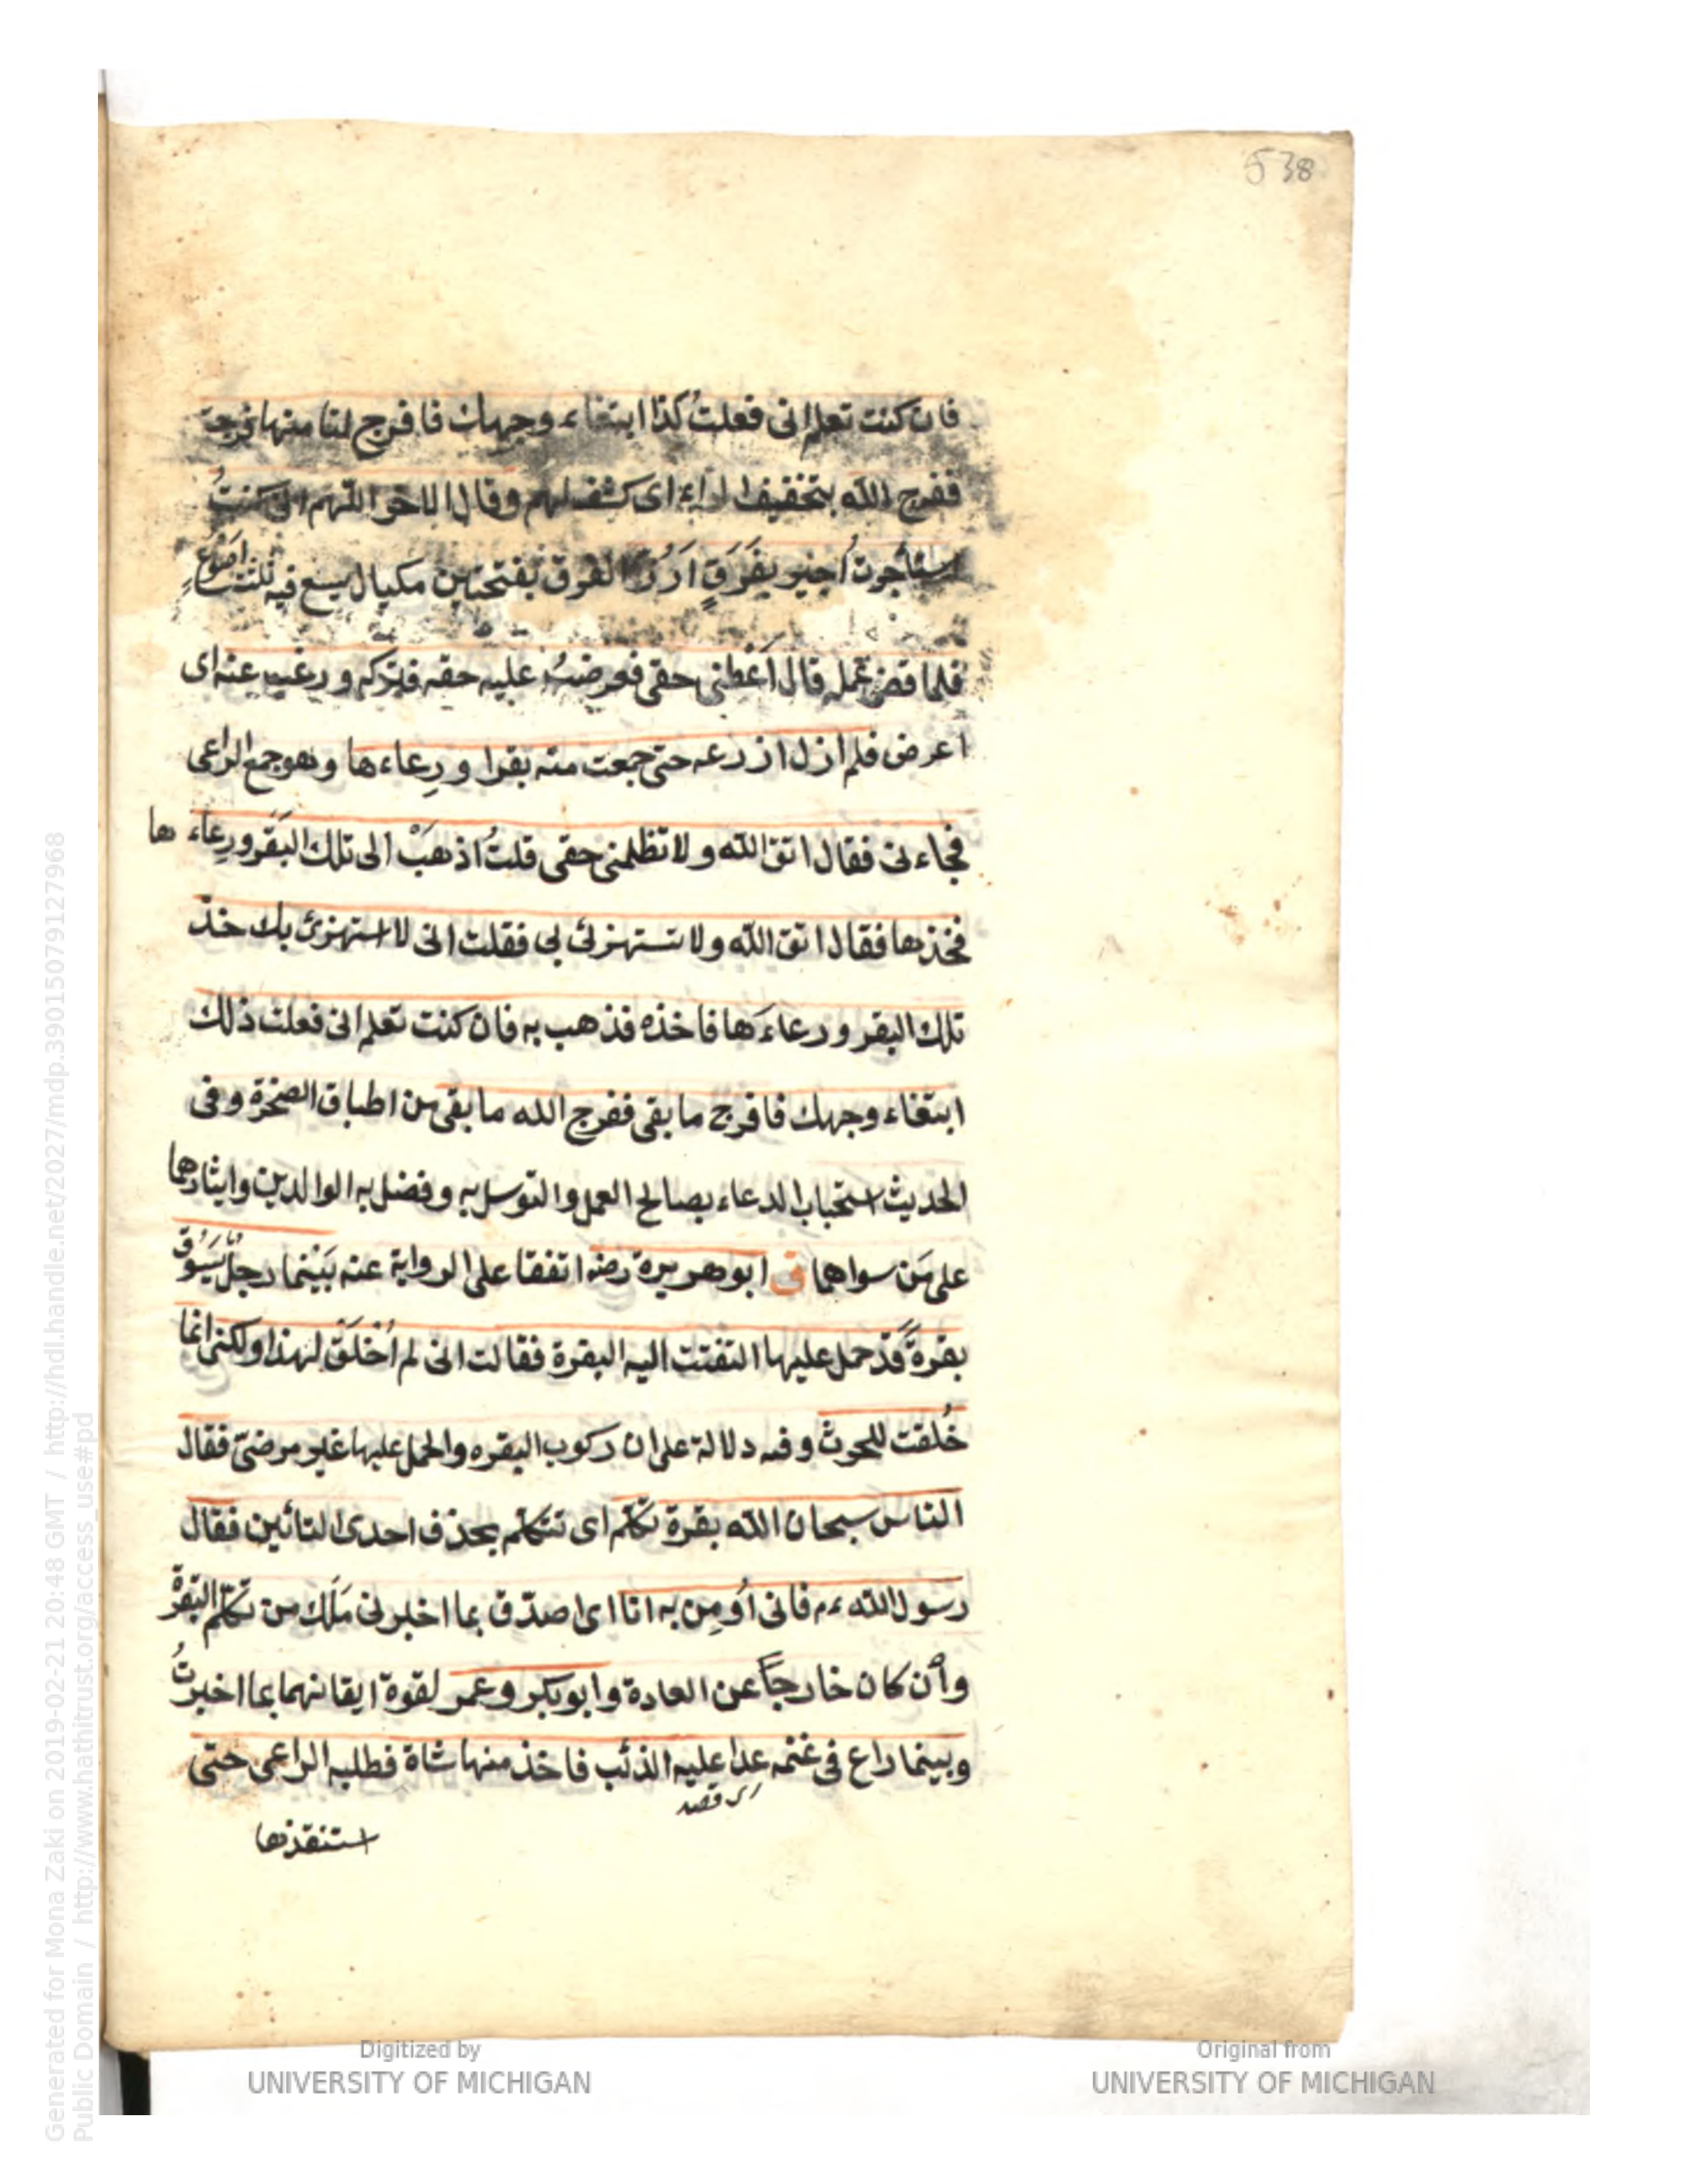 538
فان كنت تعلم انى فعلتُ كذا ابتغاء وجهك فافرج لنا منها فرجة
ففرج الله بتخفيف الراء اى كشف لهم وقال الاخر اللّهم انى كنتُ
استأجرت اجير بِفَرَقٍ اَرُزّ الفرق بفتحتين مكيال يسع فيه ثلثة اصُوعٍ
فلما قضى عمله قال اَعْطنى حقى فعرضتُ عليه حقه فتركه ورغب عنه اى
اعرض فلم ازل ازرعه حتى جمعت منه بقرا ورِعاءها وهو جمع الراعى
فجاءنى فقال اتق الله ولا تظلمنى حقى قلتُ اذهَبْ الى تلك البَقَر ورِعاءها
فخذها فقال اتق الله ولا تستهزئ بى فقلت انى لا استهزئ بك خذ
تلك البقر ورعاءَها فاخذه فذهب به فان كنت تعلم انى فعلت ذلك
ابتغاء وجهك فافرج ما بقى ففرج الله ما بقى من اطباق الصخرة وفى
الحديث استحباب الدعاء بصالح العمل والتوسل به وفضل به الوالدين وايثارهما
على مَن سواهما ق ابو هريرة رضه اتفقا على الرواية عنه بَيْنما رجلٌ يَسُوق
بقرةً قَدْ حمل عليها التفتت اليه البقرة فقالت انى لم اُخْلَقْ لهذا ولكنى انما
خُلقت للحرث وفيه دلالة على ان ركوب البقره والحمل عليها غير مرضىّ فقال
الناس سبحان الله بقرة تكلّم اى تتكلم بحذف احدى التائين فقال
رسول الله ءم فانى اُومِن به انا اى اصدّق بما اخبرنى مَلَك من تكلّم البقرة
وأن كان خارجاً عن العادة وابو بكر وعمر لقوة ايقانهما بما اخبرتُ
وبينما راع فى غنمه عدا عليه الذئب فاخذ منها شاة فطلبه الراعى حتّى
اى قصد
استنقذها
Digitized by
UNIVERSITY OF MICHIGAN
Original from
UNIVERSITY OF MICHIGAN
Generated for Mona Zaki on 2019-02-21 20:48 GMT / http://hdl.handle.net/2027/mdp.39015079127968
Public Domain / http://www.hathitrust.org/access_use#pd